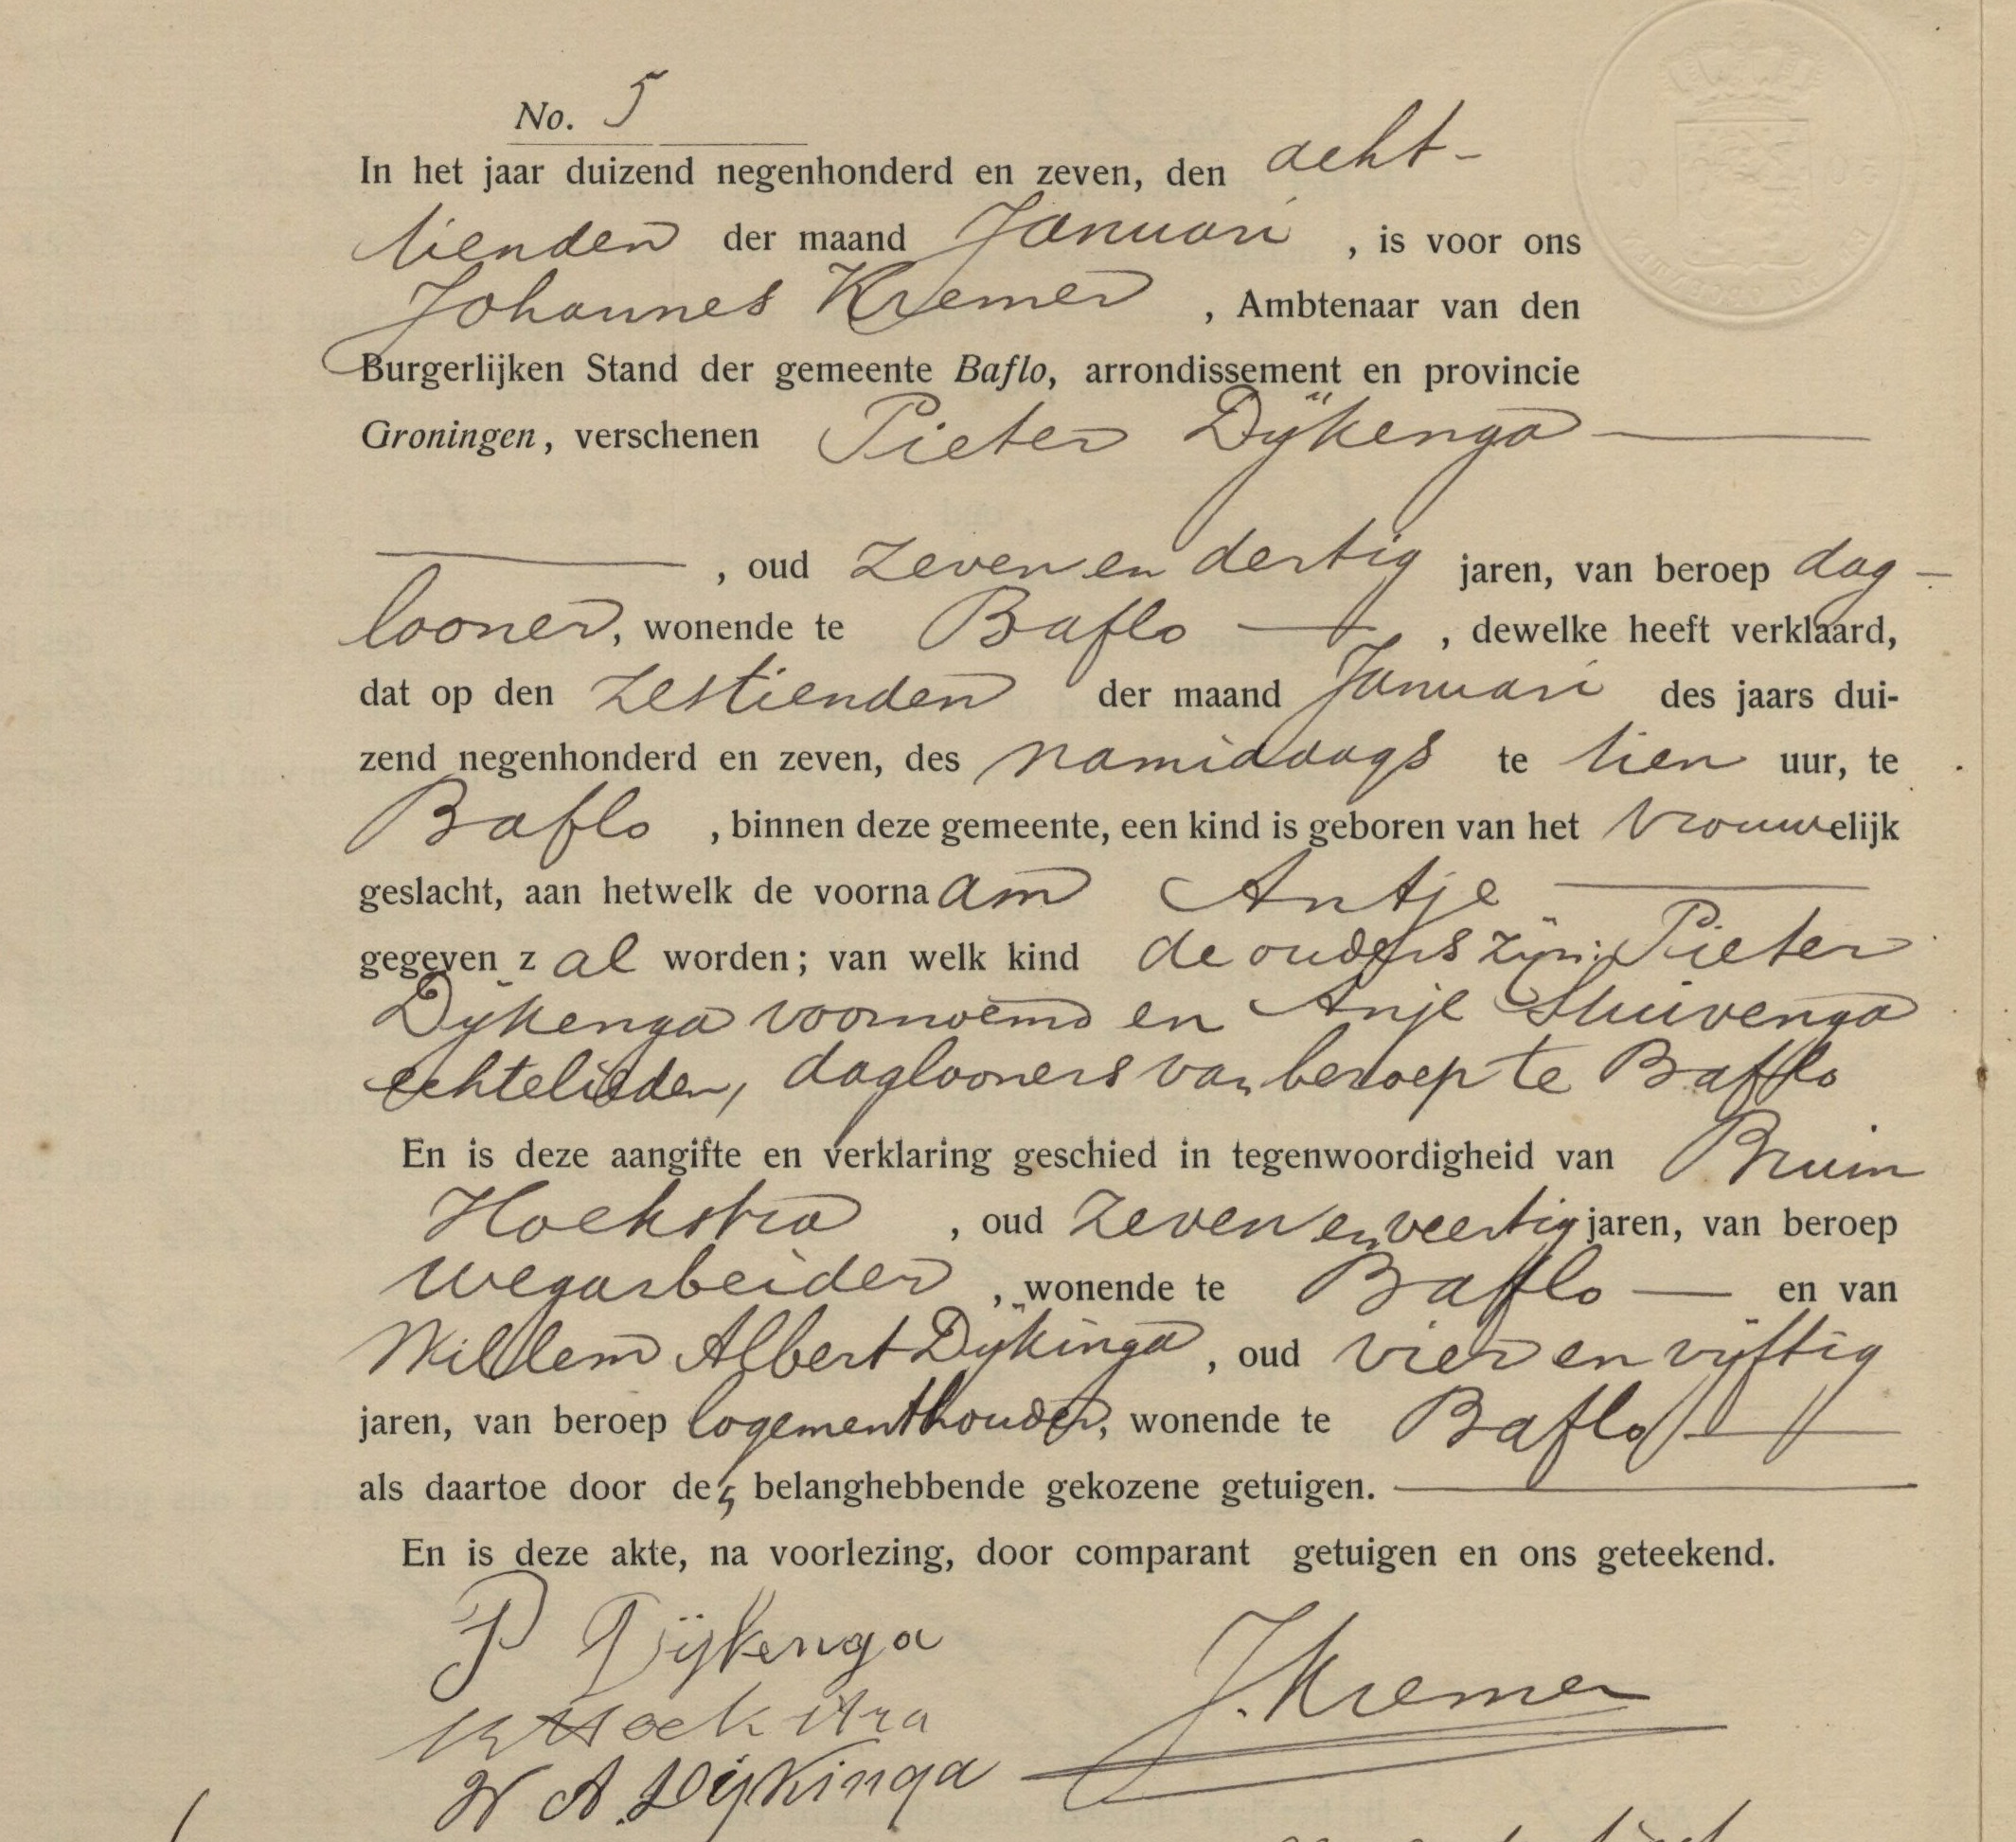 No. 5
In het jaar duizend negenhonderd en zeven, den acht-
tienden der maand Januari, is voor ons
Johannes Kremer, Ambtenaar van den
Burgerlijken Stand der gemeente Baflo, arrondissement en provincie
Groningen, verschenen Pieter Dijkenga
, oud zeven en dertig jaren, van beroep dag-
looner, wonende te Baflo, dewelke heeft verklaard,
dat op den zestienden der maand Januari des jaars dui-
zend negenhonderd en zeven, des namiddags te tien uur, te
Baflo, binnen deze gemeente, een kind is geboren van het vrouwelijk
geslacht, aan hetwelk de voornaam Antje
gegeven zal worden; van welk kind de ouders zijn: Pieter
Dijkenga voornoemd en Anje Stuivenga
echtelieden, daglooners van beroep te Baflo
En is deze aangifte en verklaring geschied in tegenwoordigheid van Bruin
Hoekstra, oud zeven en veertig jaren, van beroep
wegarbeider, wonende te Baflo en van
Willem Albert Dijkinga, oud vier en vijftig
jaren, van beroep logementhouder, wonende te Baflo
als daartoe door den belanghebbende gekozene getuigen.
En is deze akte, na voorlezing, door comparant getuigen en ons geteekend.
P Dijkenga
B Hoekstra
J. Kremer
W A. Dijkinga